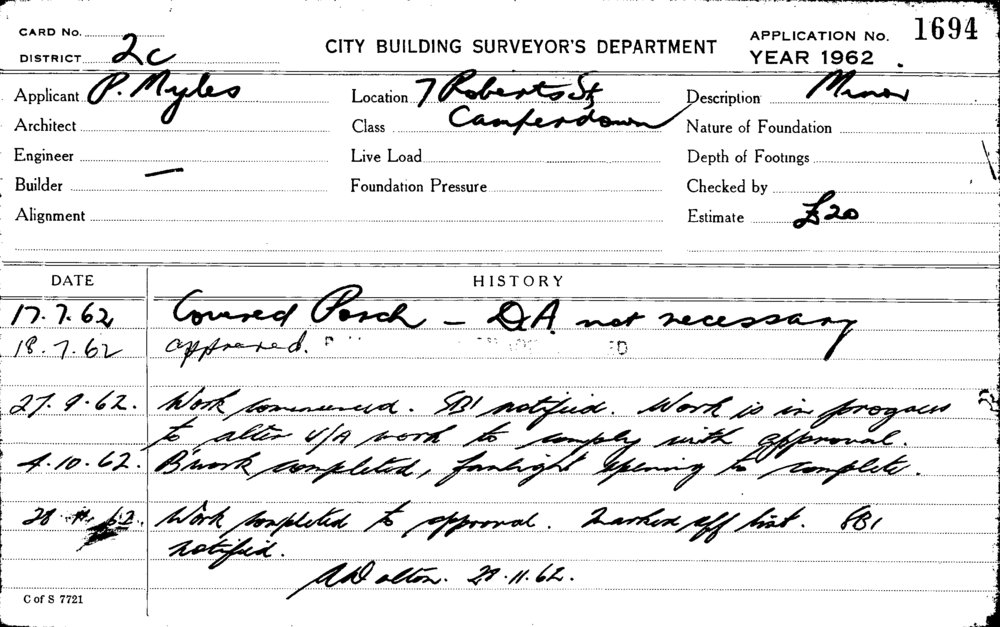 CARD No.
DISTRICT 2c
CITY BUILDING SURVEYOR'S DEPARTMENT
APPLICATION No. 1694
YEAR 1962
Applicant P. Myles
Location 7 Roberts St,
Description Minor
Architect
Class Camperdown
Nature of Foundation
Engineer
Live Load
Depth of Footings
Builder —
Foundation Pressure
Checked by
Alignment
Estimate £20
DATE HISTORY
17.7.62 Covered Porch – D.A. not necessary
18.7.62 approved.
27.9.62. Work commenced. SBI notified. Work is in progress
to alter U/A work to comply with approval.
4.10.62. B'work completed, fanlight opening to complete.
28.11.62. Work completed to approval. Marked off list. SBI
notified.
A Dalton. 28.11.62.
C of S 7721